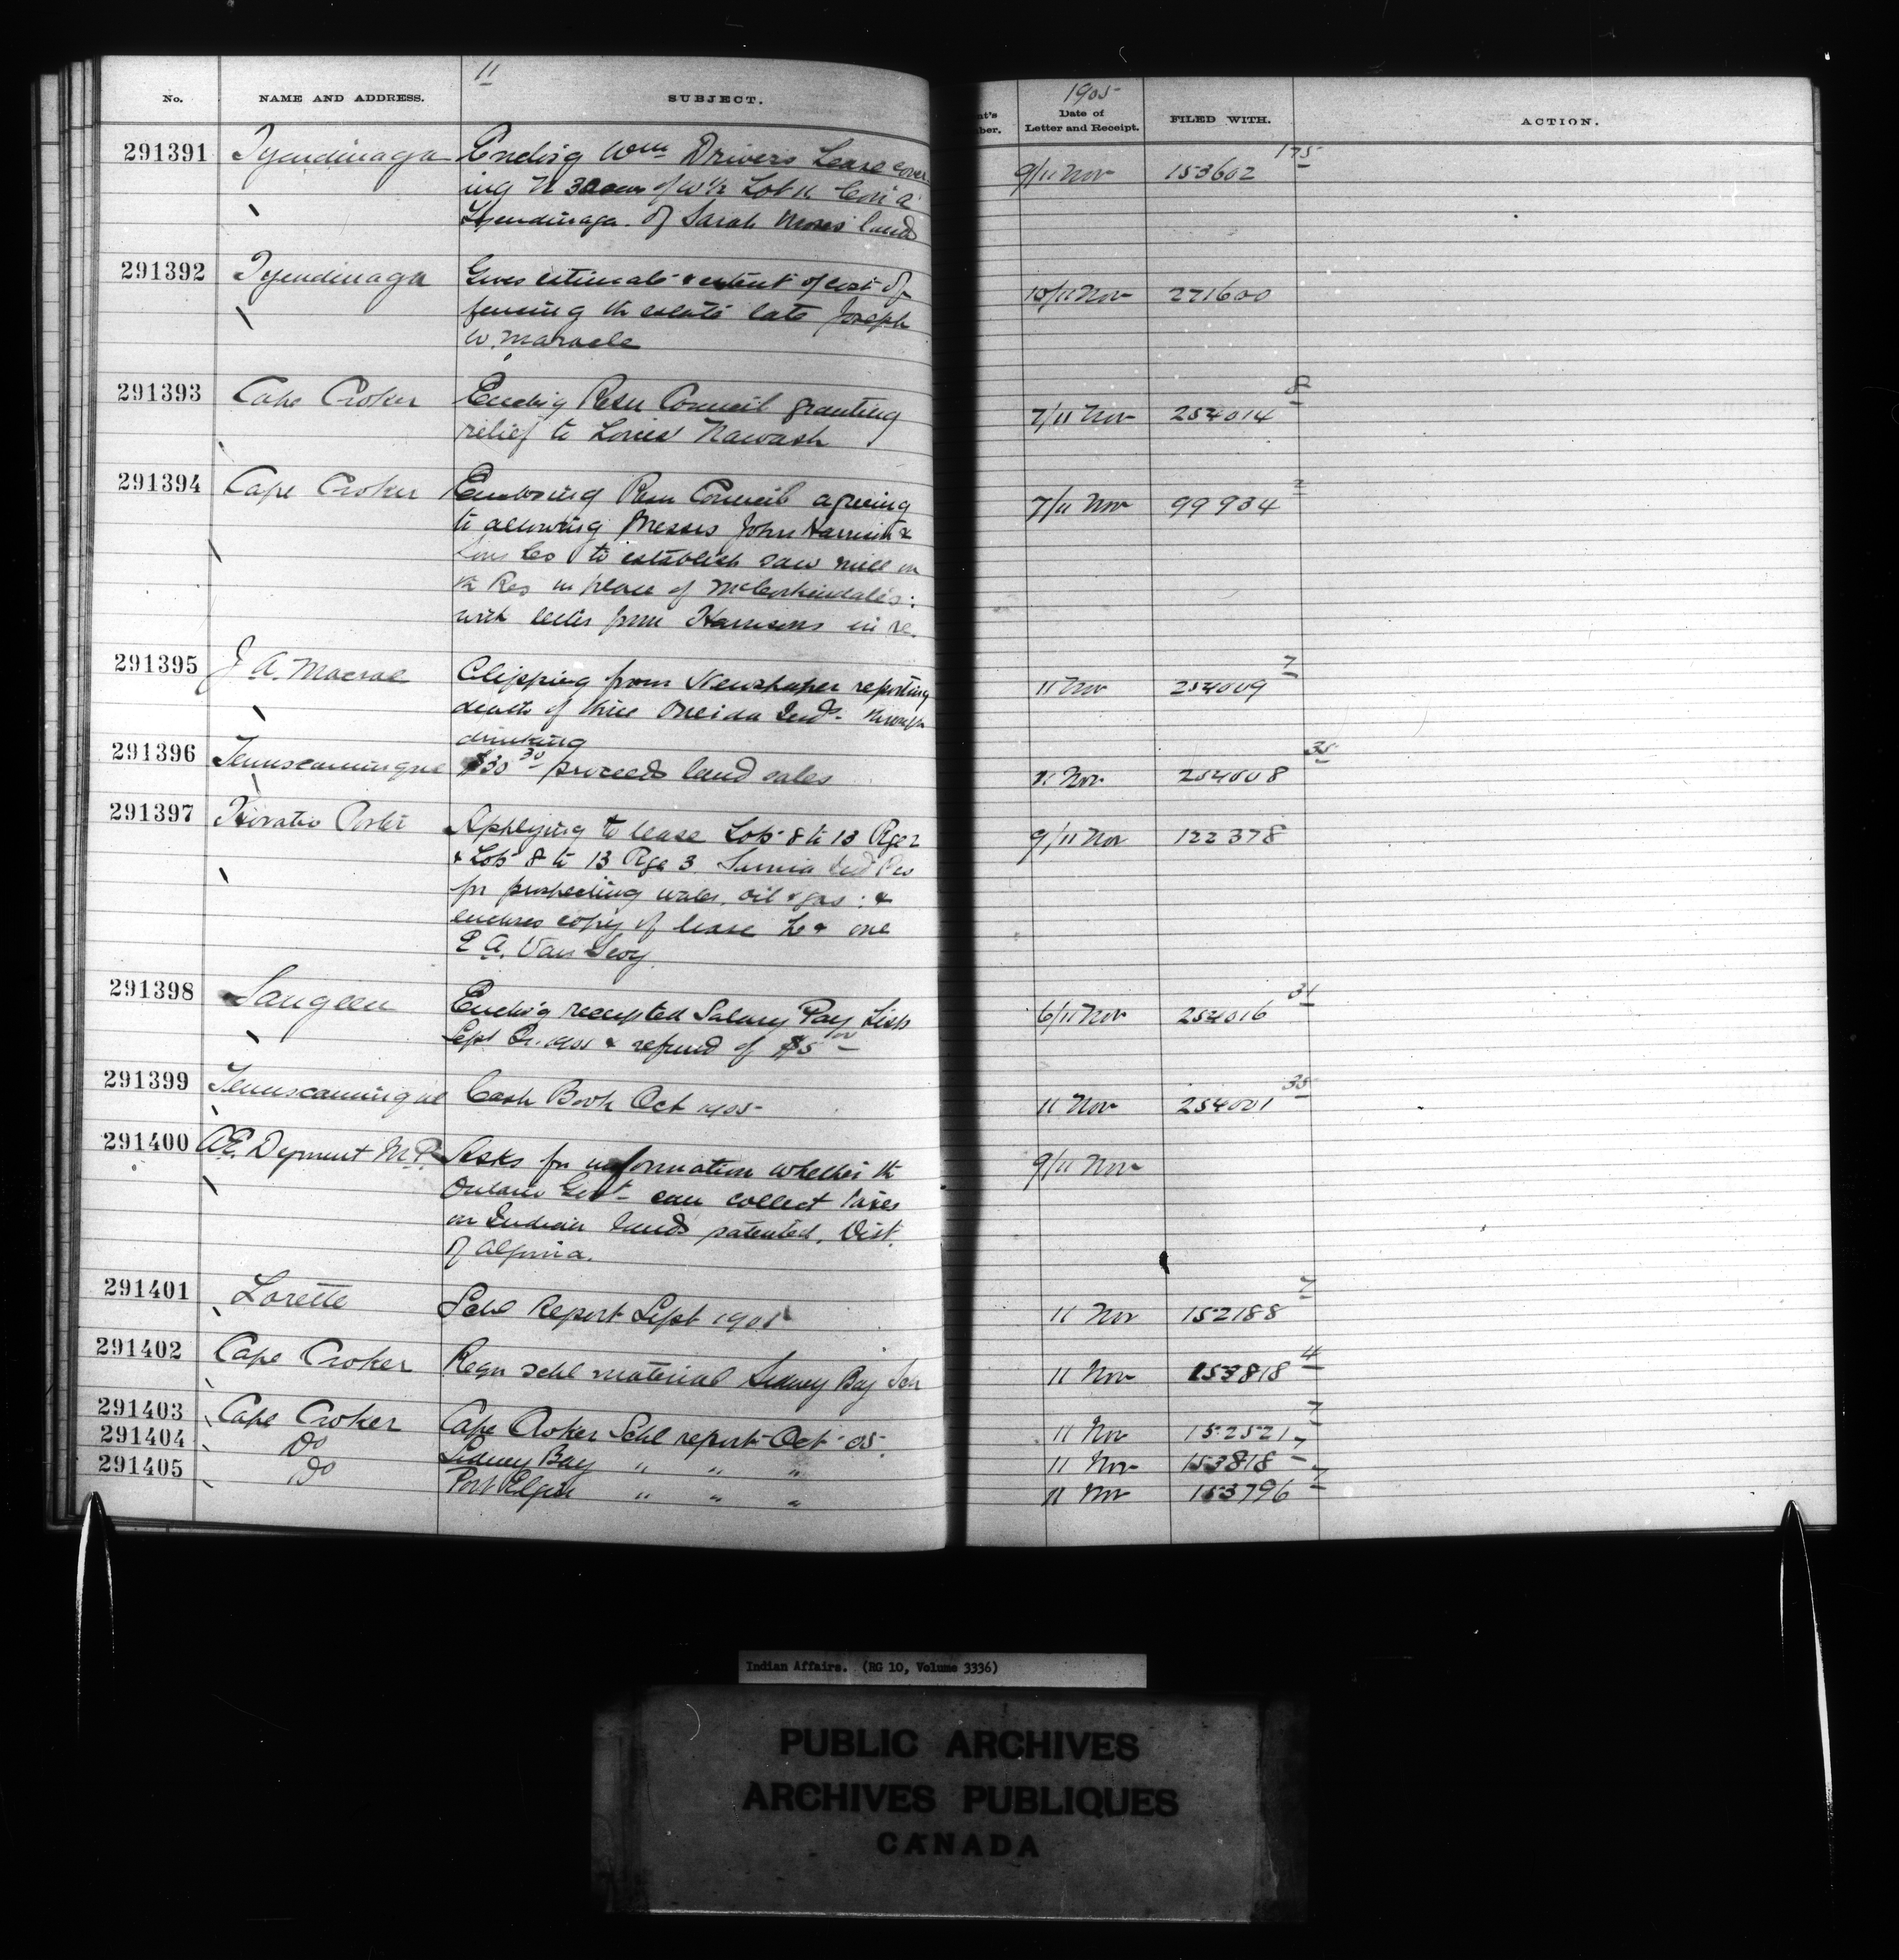 11
1905
No.
NAME AND ADDRESS.
SUBJECT.
Date of
Letter and Receipt.
FILED WITH.
ACTION.
291391 Tyendinaga Encl'g Wm Drivers Lease cover
ing N 30 acres of W 1/2 Lot 11 Con A
Tyendinaga of Sarah Moses' land
9/11 Nov 153602 175
291392 Tyendinaga Gives estimate & extent of cost of
fencing th estate late Joseph
W. Maracle
10/11 Nov 271600
291393 Cape Croker Encl'g Resn Council granting
relief to Louis Nawash
7/11 Nov 254014 8
291394 Cape Croker Enclosing Resn Council agreeing
to allowing Messrs John Harrison &
Sons Co to establish saw mill on
th Res in place of McCorkindale's:
with letter from Harrisons in re.
7/11 Nov 99934 2
291395 J A. Macrae Clipping from Newspaper reporting
death of three Oneida Inds through
drinking
11 Nov 254009 7
291396 Temiscamingue $30 30 proceeds land sales
11 Nov 254008 35
291397 Horatio Porter Applying to lease Lots 8 to 13 Rge 2
& Lots 8 to 13 Rge 3 Sarnia Ind Res
for prospecting water, oil & gas: &
encloses copy of lease he & one
E A. Van
9/11 Nov 122378
291398 Saugeen Encl'g receipted Salary Pay Lists
Sept Qr. 1905 & refund of $5 00
6/11 Nov 254016 31
291399 Temiscamingue Cash Book Oct 1905
11 Nov 254001 35
291400 A.E. Dyment M.P. Asks for information whether th
Ontario Govt can collect taxes
on Indian lands patented, Dist.
of Algoma.
9/11 Nov
291401 Lorette Schl Report Sept 1905
11 Nov 152188 7
291402 Cape Croker Reqn schl material Sidney Bay Sch
11 Nov 153818 4
291403 Cape Croker Cape Croker Schl report Oct '05.
11 Nov 152521 7
291404 Do Sidney Bay " " "
11 Nov 153818 7
291405 Do Port Elgin " " "
11 Nov 153796 7
Indian Affairs. (RG 10, Volume 3336)
PUBLIC ARCHIVES
ARCHIVES PUBLIQUES
CANADA